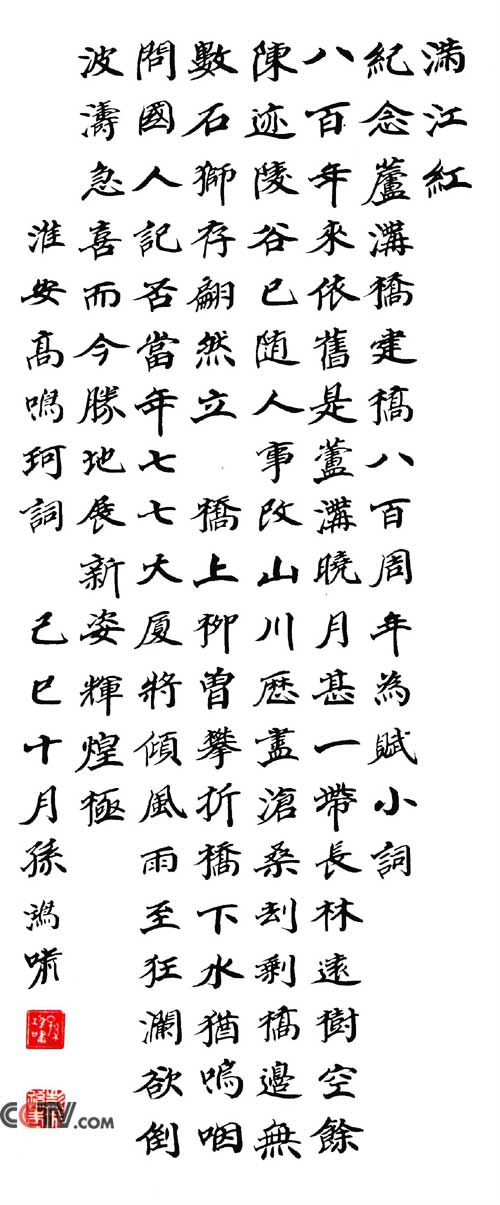 滿江紅
紀念蘆溝橋建橋八百周年為賦小詞
八百年來依舊是蘆溝曉月甚一帶長林遠樹空餘
陳迹陵谷已随人事改山川歷盡滄桑刦剩橋邊無
數石獅存翩然立 橋上柳曾攀折橋下水猶嗚咽
問國人記否當年七七大厦將傾風雨至狂瀾欲倒
波濤急喜而今勝地展新姿輝煌極
淮安高鳴珂詞 己巳十月孫鴻嘯
CCTV.com